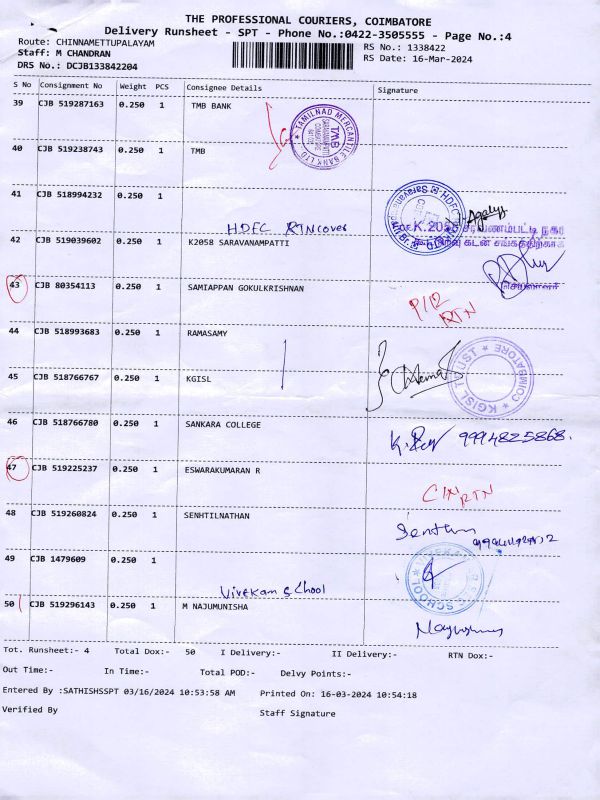 THE PROFESSIONAL COURIERS, COIMBATORE
Delivery Runsheet - SPT - Phone No.:0422-3505555 - Page No.:4
Route: CHINNAMETTUPALAYAM
RS No.: 1338422
Staff: M CHANDRAN
RS Date: 16-Mar-2024
DRS No.: DCJB133842204
S No Consignment No Weight PCS Consignee Details Signature
39 CJB 519287163 0.250 1 TMB BANK
TAMILNAD MERCANTILE BANK LTD.
TMB
40 CJB 519238743 0.250 1 TMB
41 CJB 518994232 0.250 1
HDFC RTN cover
42 CJB 519039602 0.250 1 K2058 SARAVANAMPATTI
செயலாளர்
43 CJB 80354113 0.250 1 SAMIAPPAN GOKULKRISHNAN
P/12
RTN
44 CJB 518993683 0.250 1 RAMASAMY
45 CJB 518766767 0.250 1 KGISL
COIMBATORE
46 CJB 518766780 0.250 1 SANKARA COLLEGE
9994825868.
47 CJB 519225237 0.250 1 ESWARAKUMARAN R
RTN
48 CJB 519260824 0.250 1 SENHTILNATHAN
49 CJB 1479609 0.250 1
Vivekam School
SCHOOL
50 CJB 519296143 0.250 1 M NAJUMUNISHA
Tot. Runsheet:- 4 Total Dox:- 50 I Delivery:- II Delivery:- RTN Dox:-
Out Time:- In Time:- Total POD:- Delvy Points:-
Entered By :SATHISHSSPT 03/16/2024 10:53:58 AM Printed On: 16-03-2024 10:54:18
Verified By Staff Signature